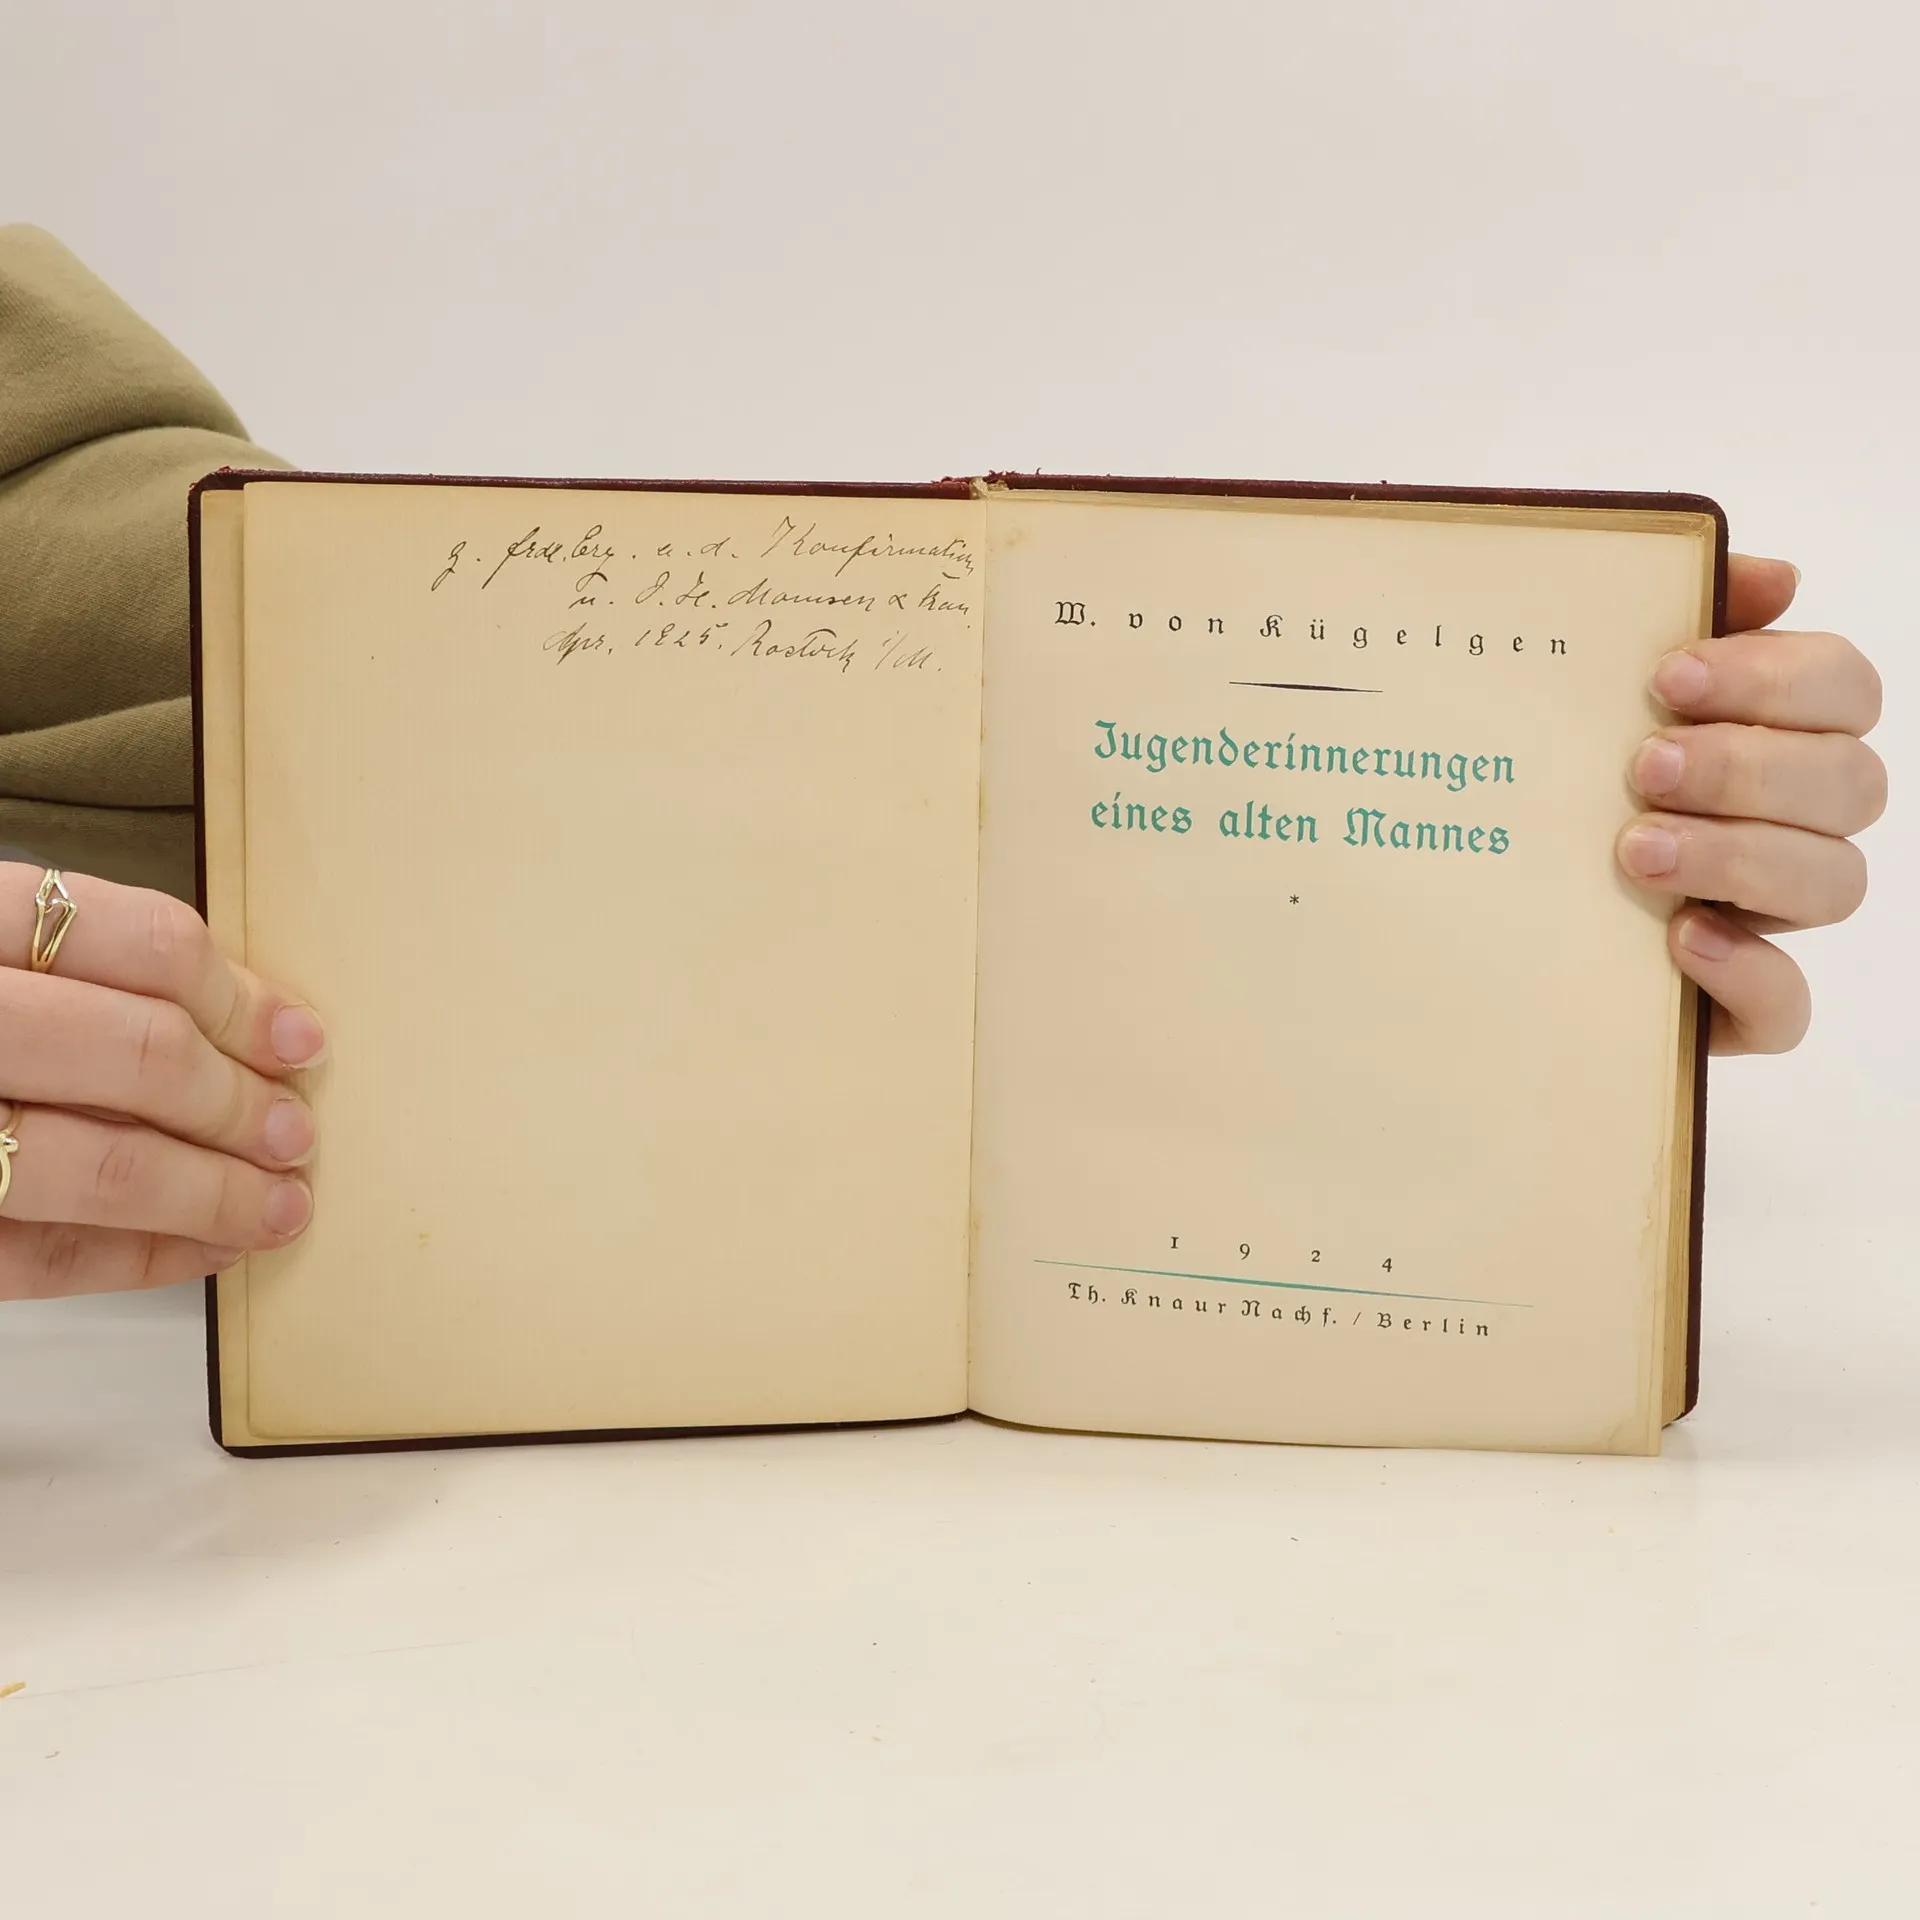 z. frdl. Erg. a. d. Konfirmation
v. J. H. Momsen & Frau.
Apr. 1925. Rostock i/M.
W. von Kügelgen
Jugenderinnerungen
eines alten Mannes
*
1924
Th. Knaur Nachf. / Berlin